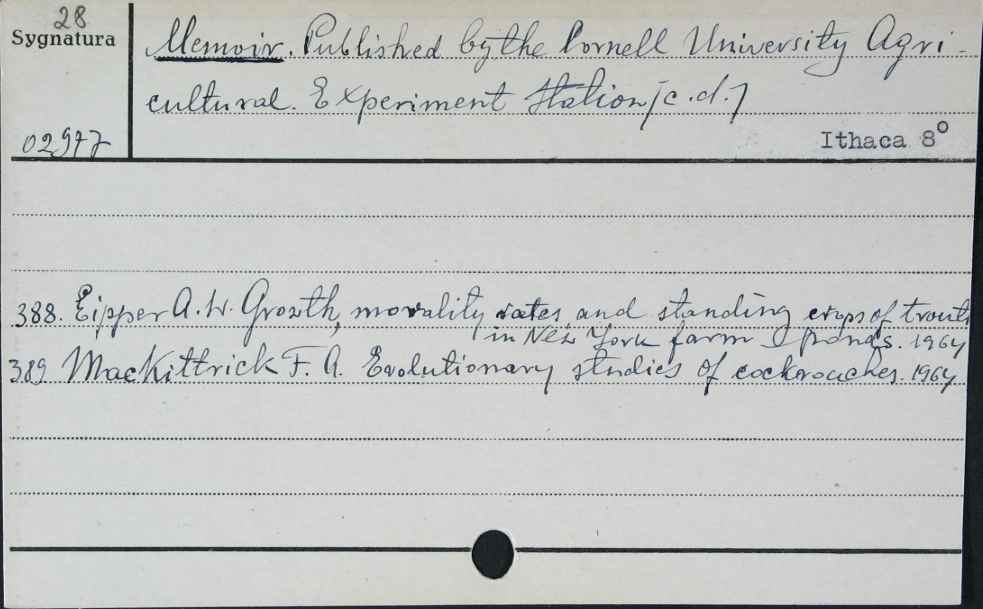 28
Sygnatura
02977
Memoir. Published by the Cornell University Agri-
cultural. Experiment Station [c.d.]
Ithaca 8°
388. Eipper A.W. Growth, movality rates and standing crops of trouts
in New York farm ponds. 1964
389 MacKittrick F. A. Evolutionary studies of cockroaches. 1964